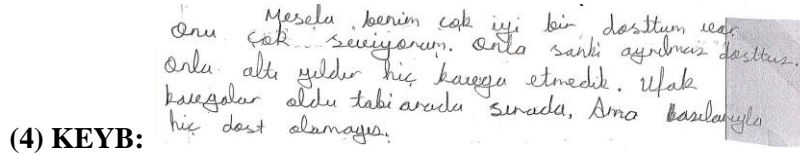 Mesela benim çok iyi bir dosttum var
onu çok seviyorum. Onla sanki ayrılmaz dosttuz.
Onla altı yıldır hiç kavga etmedik. Ufak
kavgalar oldu tabi arada sırada, Ama baslarıyla
(4) KEYB: hiç dost olamayız.